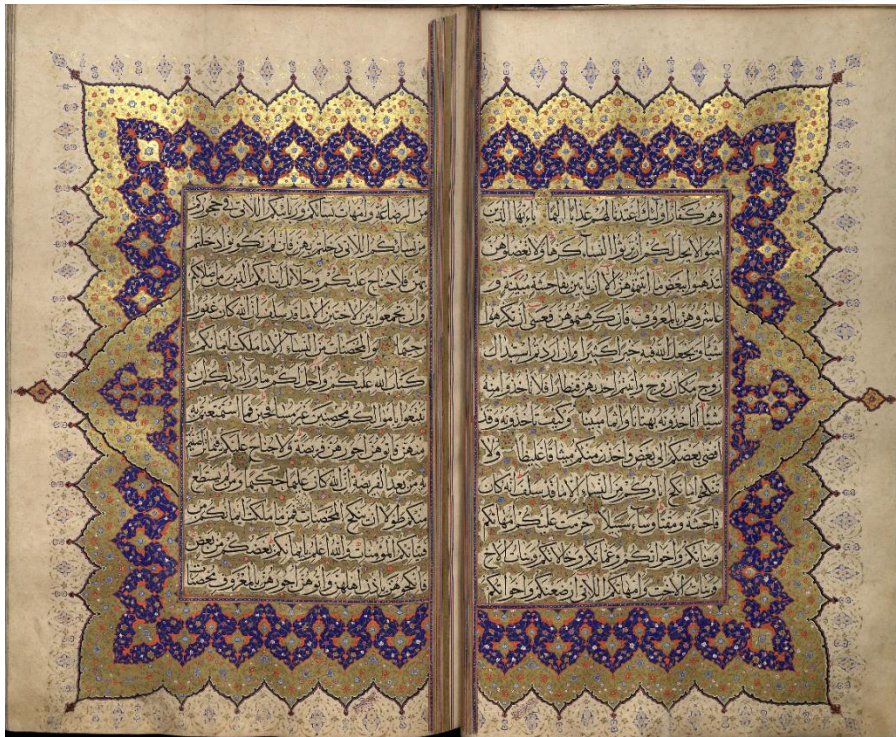 وهم كفار اولئك اعتدنا لهم عذابا اليما يا ايها الذين
آمنوا لا يحل لكم ان ترثوا النساء كرها ولا تعضلوهن
لتذهبوا ببعض ما آتيتموهن الا ان ياتين بفاحشة مبينة و
عاشروهن بالمعروف فان كرهتموهن فعسى ان تكرهوا
شيئا ويجعل الله فيه خيرا كثيرا وان اردتم استبدال
زوج مكان زوج وآتيتم احديهن قنطارا فلا تاخذوا منه
شيئا اتاخذونه بهتانا واثما مبينا وكيف تاخذونه وقد
افضى بعضكم الى بعض واخذن منكم ميثاقا غليظا ولا
تنكحوا ما نكح آباؤكم من النساء الا ما قد سلف انه كان
فاحشة ومقتا وساء سبيلا حرمت عليكم امهاتكم
وبناتكم واخواتكم وعماتكم وخالاتكم وبنات الاخ
وبنات الاخت وامهاتكم اللاتي ارضعنكم واخواتكم
من الرضاعة وامهات نسائكم وربائبكم اللاتي في حجوركم
من نسائكم اللاتي دخلتم بهن فان لم تكونوا دخلتم
بهن فلا جناح عليكم وحلائل ابنائكم الذين من اصلابكم
وان تجمعوا بين الاختين الا ما قد سلف ان الله كان غفورا
رحيما والمحصنات من النساء الا ما ملكت ايمانكم
كتاب الله عليكم واحل لكم ما وراء ذلكم ان
تبتغوا باموالكم محصنين غير مسافحين فما استمتعتم به
منهن فآتوهن اجورهن فريضة ولا جناح عليكم فيما تراضيتم
به من بعد الفريضة ان الله كان عليما حكيما ومن لم يستطع
منكم طولا ان ينكح المحصنات المؤمنات فمن ما ملكت ايمانكم من
فتياتكم المؤمنات والله اعلم بايمانكم بعضكم من بعض
فانكحوهن باذن اهلهن وآتوهن اجورهن بالمعروف محصنات